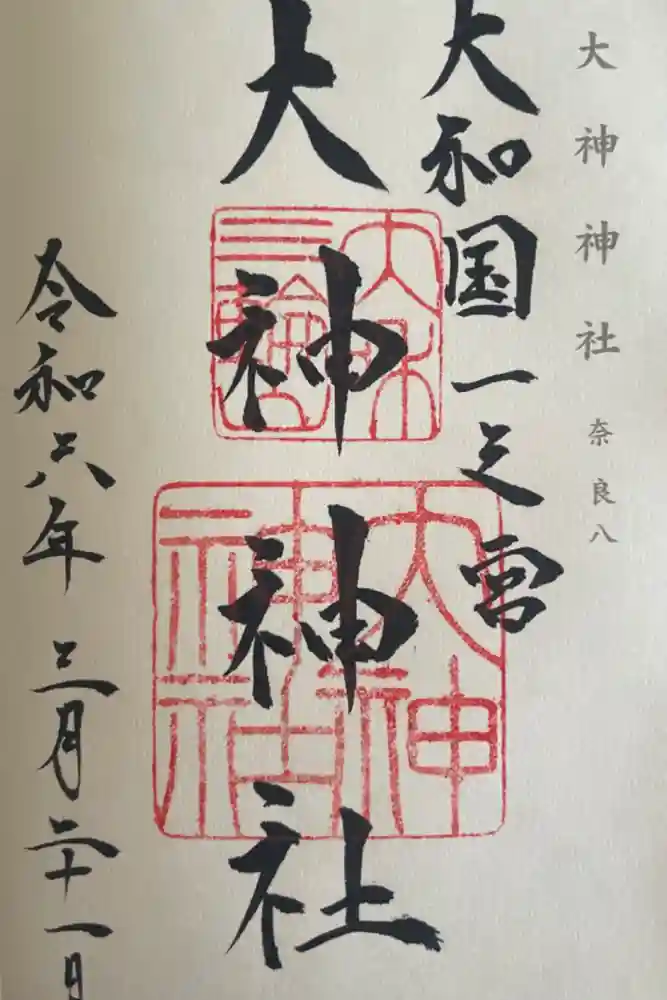 大神神社 奈良八
大和国一之宮
大神神社
大和
三輪山
大神
神社
令和六年三月二十一日